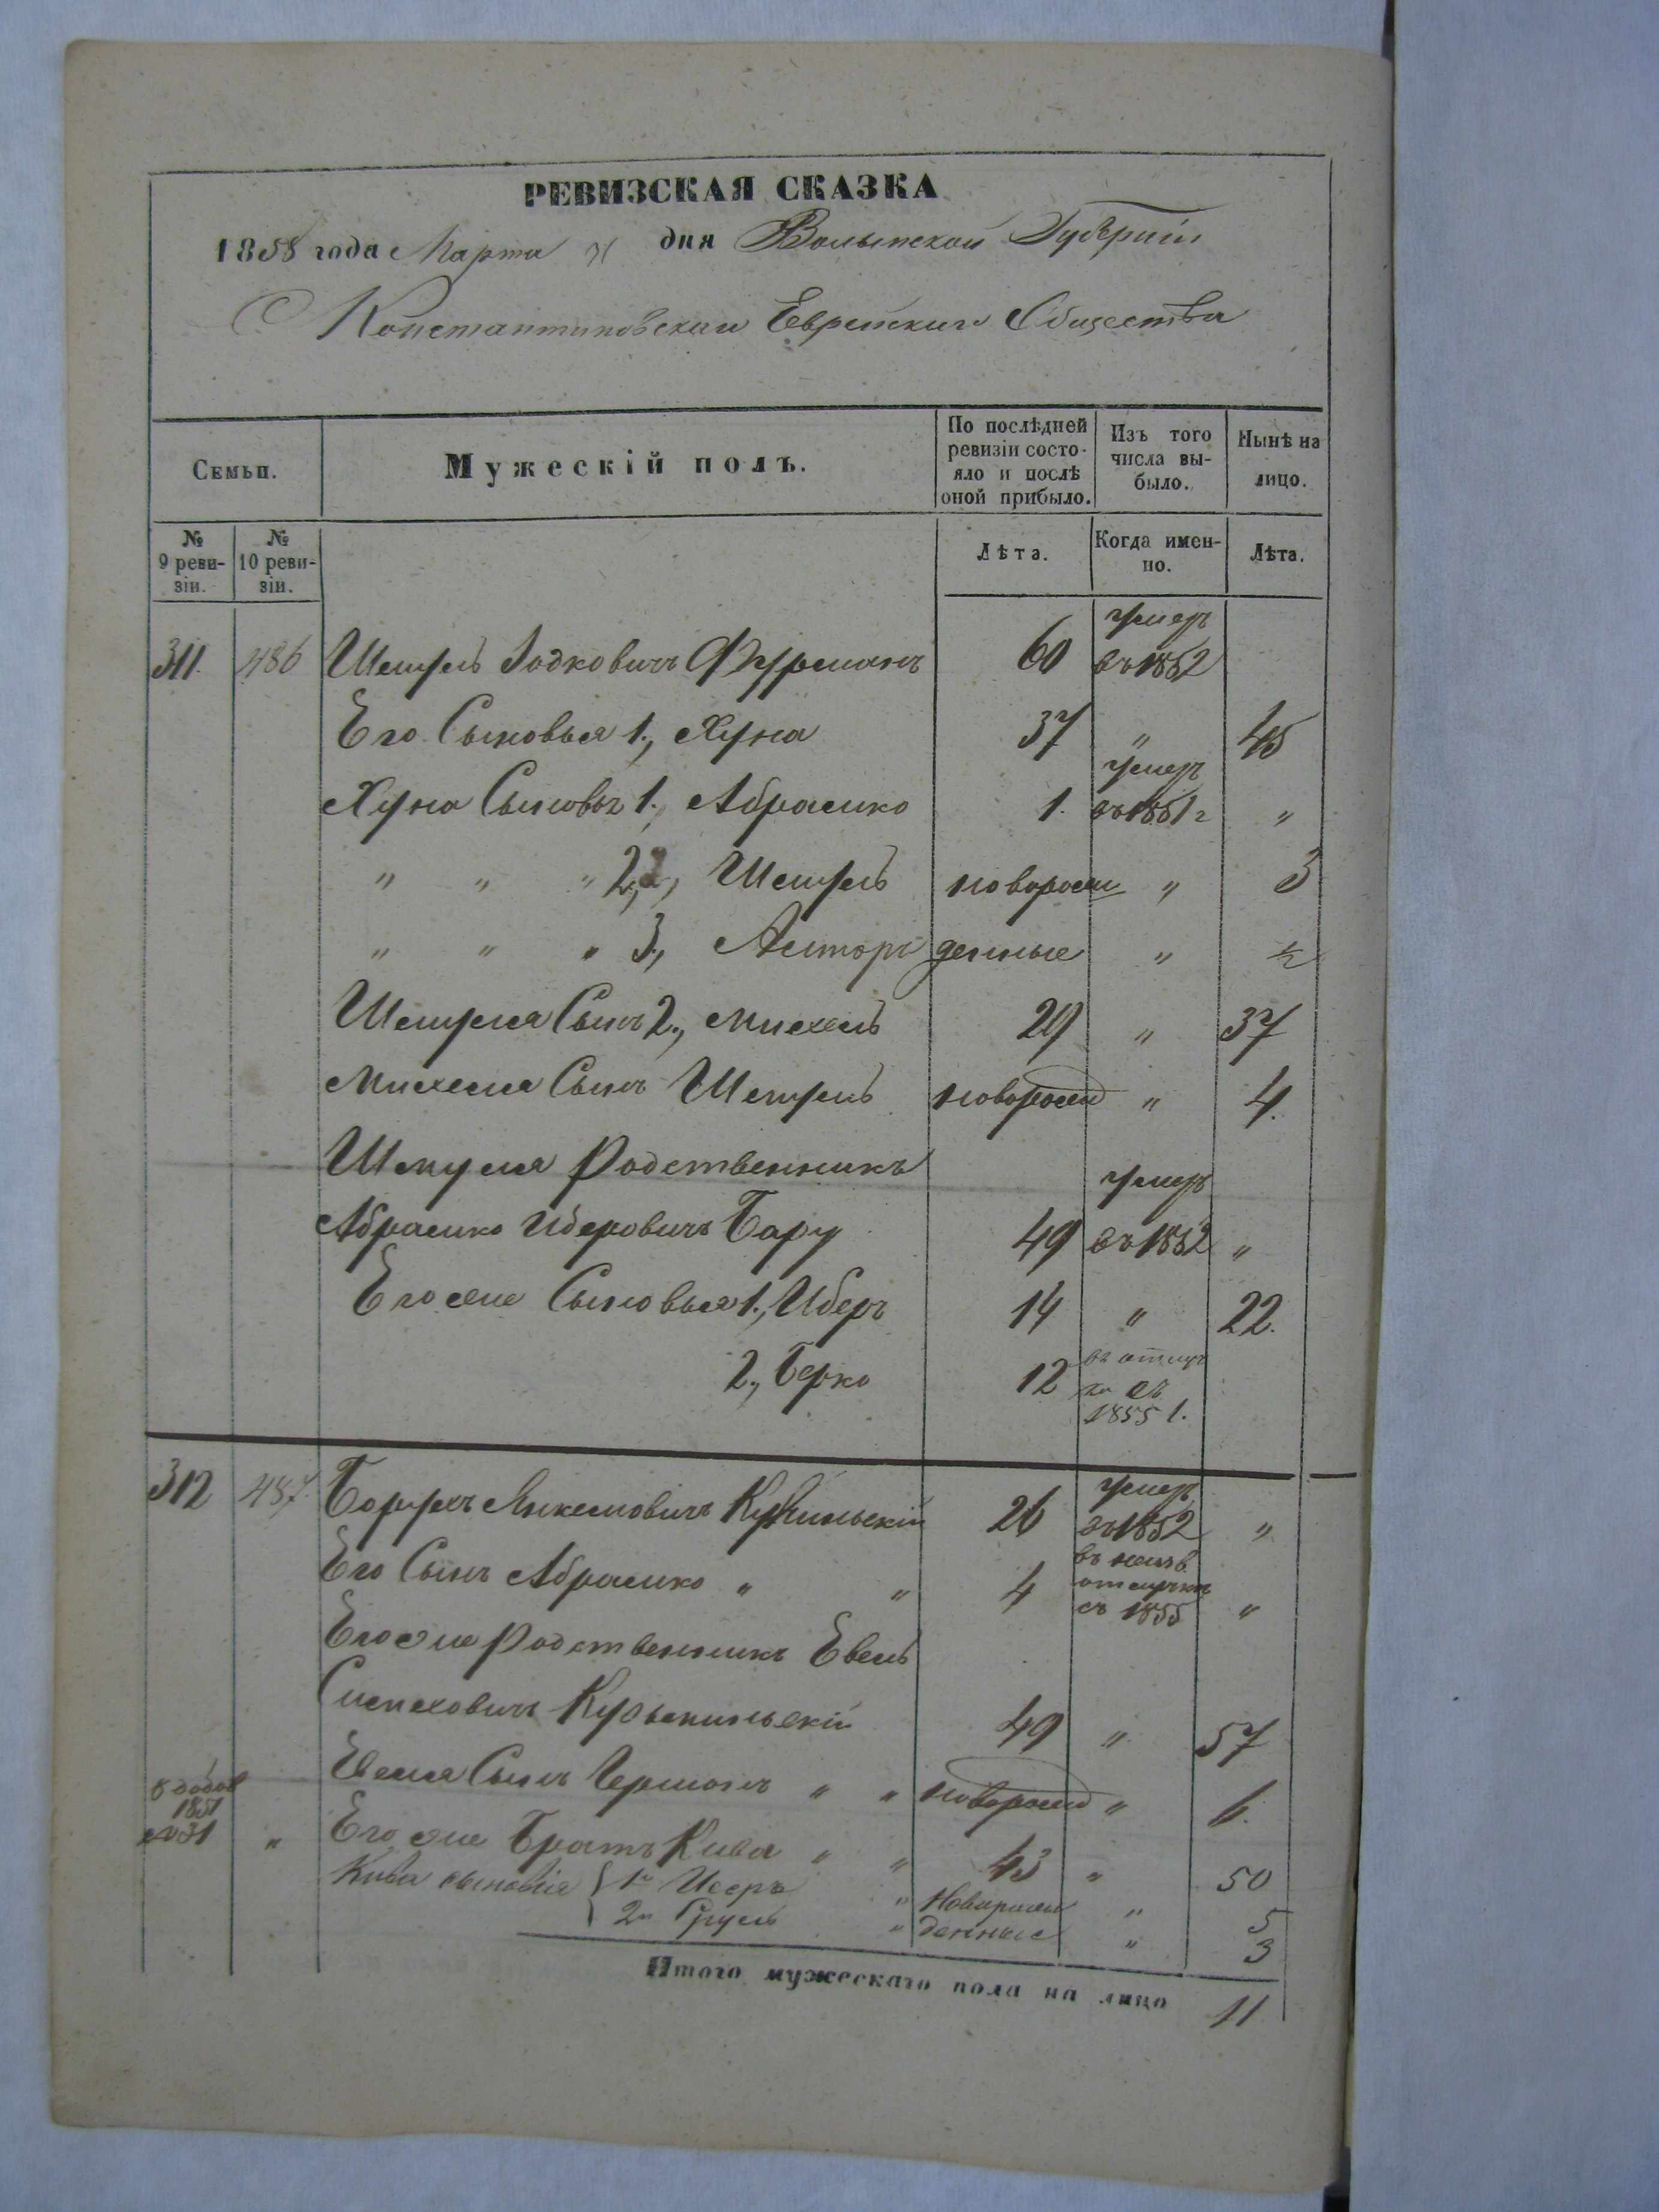 РЕВИЗСКАЯ СКАЗКА
1858 года Марта дня Волынской Губерніи
Константиновскаи Еврейскиго Общества
Семьи.
Мужескій полъ.
По послѣдней ревизіи состояло и послѣ оной прибыло.
Изъ того числа выбыло.
Нынѣ на лицо.
№ 9 ревизіи.
№ 10 ревизіи.
Лѣта.
Когда именно.
Лѣта.
311. 486 Шмуль Іодковичъ Фурманъ 60 умеръ въ 1852
Его Сыновья 1., Хуна 37 " 45
Хуна Сыновья 1., Абрамко 1. умеръ въ 1851 г "
" " " 2, Шмуль новорож " 3
" " " 3, Алторъ денные " ½
Шмуля Сынъ 2., Михель 29 " 37
Михеля Сынъ Шмуль новорожд " 4.
Шмуля Родственникъ
Абрамко Иберовичъ Бару 49 умеръ въ 1852 "
Егоже Сыновья 1., Иберъ 14 " 22.
2., Берко 12 въ 1855 г.
312 487. Борухъ Янкелевичъ 26 умеръ въ 1852 "
Его Сынъ Абрамко " " 4 въ неизв отлучкѣ съ 1855 "
Егоже Родственникъ Евель
49 " 57
Евеля Сынъ Гершонъ " " новорожд " 6.
1851 №31 " Егоже Братъ Кива " " 43 " 50
Кива сыновья 1й " Новорож " 5
2й Сруль " денные " 3
Итого мужескаго пола на лицо 11